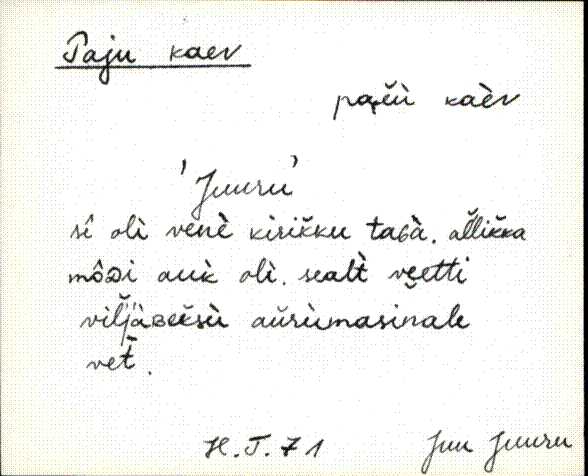 Paju kaev
pa̬ĕù kaèv
'Juuru'
sê olì venè kìrikku taʙà. al̆likka
môᴅi auk̀ olì. sealt̀ vĕetti
vil̆jàʙeĕsù aŭrùmasin̆ale
vet̀.
H. T. 71
Juu Juuru